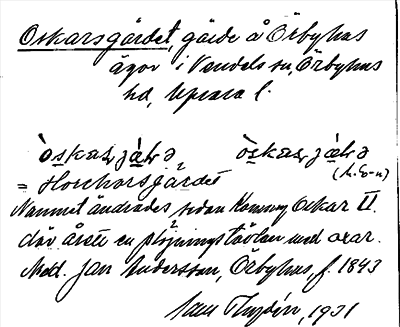 Oskarsgärdet, gärde å Örbyhus
ägor i Vendels sn, Örbyhus
hd, Uppsala l.
òskaṣjäḷɖə òskaṣjäḷɖə
= Horshorsgärdet (h. E-n)
Namnet ändrades sedan Konung Oskar II.
där årsett en plöjningstävlan med oxar.
Medd. Jan Andersson, Örbyhus, f. 1843
1931